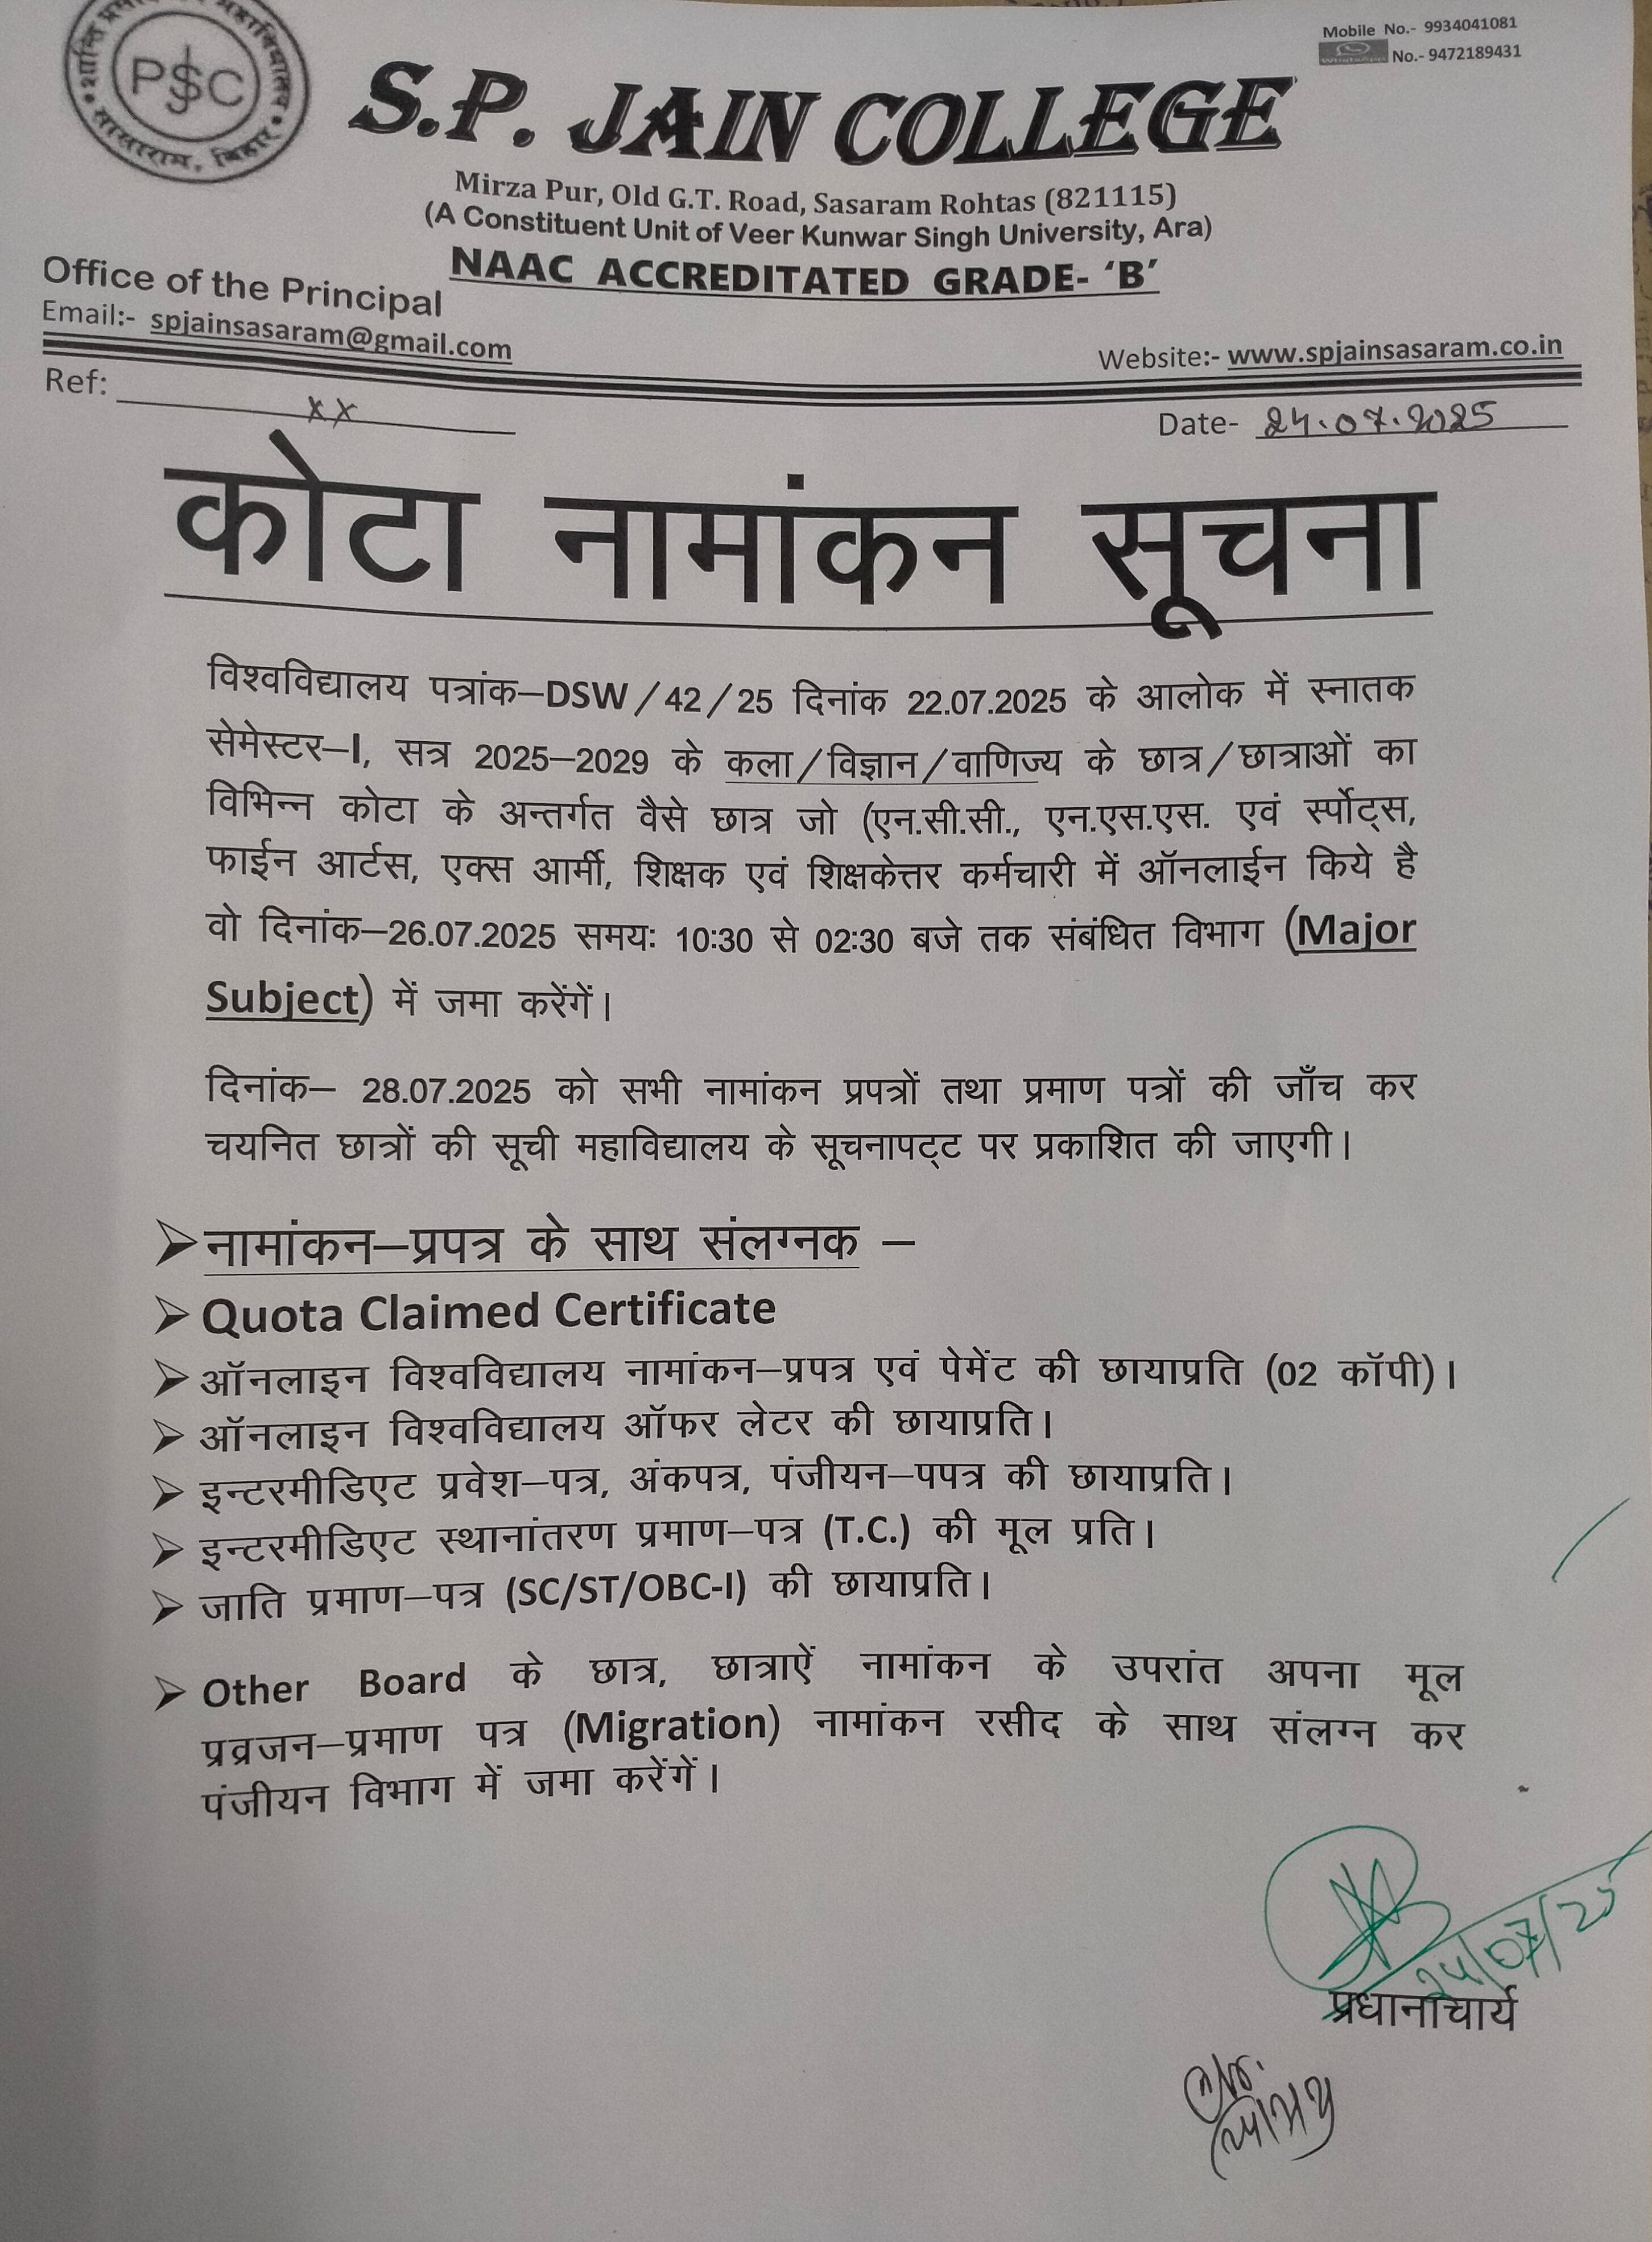 Mobile No.- 9934041081
WhatsApp No.- 9472189431
PSJC
सासाराम, बिहार
S.P. JAIN COLLEGE
Mirza Pur, Old G.T. Road, Sasaram Rohtas (821115)
(A Constituent Unit of Veer Kunwar Singh University, Ara)
NAAC ACCREDITATED GRADE- ‘B’
Office of the Principal
Email:- spjainsasaram@gmail.com
Website:- www.spjainsasaram.co.in
Ref: xx
Date- 24.07.2025
कोटा नामांकन सूचना
विश्वविद्यालय पत्रांक–DSW/42/25 दिनांक 22.07.2025 के आलोक में स्नातक
सेमेस्टर–I, सत्र 2025–2029 के कला/विज्ञान/वाणिज्य के छात्र/छात्राओं का
विभिन्न कोटा के अन्तर्गत वैसे छात्र जो (एन.सी.सी., एन.एस.एस. एवं र्स्पोट्स,
फाईन आर्टस, एक्स आर्मी, शिक्षक एवं शिक्षकेत्तर कर्मचारी में ऑनलाईन किये है
वो दिनांक–26.07.2025 समयः 10:30 से 02:30 बजे तक संबंधित विभाग (Major
Subject) में जमा करेंगें।
दिनांक– 28.07.2025 को सभी नामांकन प्रपत्रों तथा प्रमाण पत्रों की जाँच कर
चयनित छात्रों की सूची महाविद्यालय के सूचनापट्ट पर प्रकाशित की जाएगी।
➢ नामांकन–प्रपत्र के साथ संलग्नक –
➢ Quota Claimed Certificate
➢ ऑनलाइन विश्वविद्यालय नामांकन–प्रपत्र एवं पेमेंट की छायाप्रति (02 कॉपी)।
➢ ऑनलाइन विश्वविद्यालय ऑफर लेटर की छायाप्रति।
➢ इन्टरमीडिएट प्रवेश–पत्र, अंकपत्र, पंजीयन–पपत्र की छायाप्रति।
➢ इन्टरमीडिएट स्थानांतरण प्रमाण–पत्र (T.C.) की मूल प्रति।
➢ जाति प्रमाण–पत्र (SC/ST/OBC-I) की छायाप्रति।
➢ Other Board के छात्र, छात्राऐं नामांकन के उपरांत अपना मूल
प्रव्रजन–प्रमाण पत्र (Migration) नामांकन रसीद के साथ संलग्न कर
पंजीयन विभाग में जमा करेंगें।
24/07/25
प्रधानाचार्य